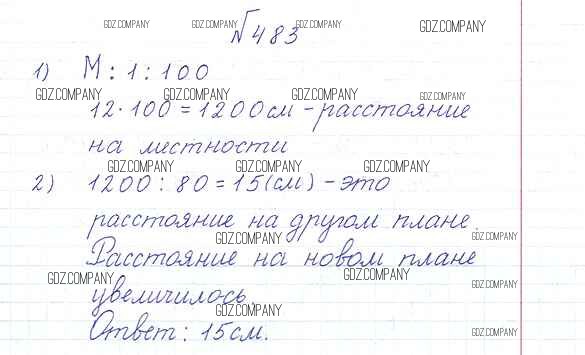 GDZ.COMPANY GDZ.COMPANY GDZ.COMPANY GDZ.COMPANY
№ 483
1) М : 1 : 100
GDZ.COMPANY GDZ.COMPANY GDZ.COMPANY GDZ.COMPANY
12 · 100 = 1200 см – расстояние
на местности
GDZ.COMPANY GDZ.COMPANY GDZ.COMPANY
2) 1200 : 80 = 15 (см) – это
расстояние на другом плане.
GDZ.COMPANY GDZ.COMPANY
Расстояние на новом плане
GDZ.COMPANY GDZ.COMPANY GDZ.COMPANY
увеличилось.
GDZ.COMPANY GDZ.COMPANY
Ответ: 15 см.